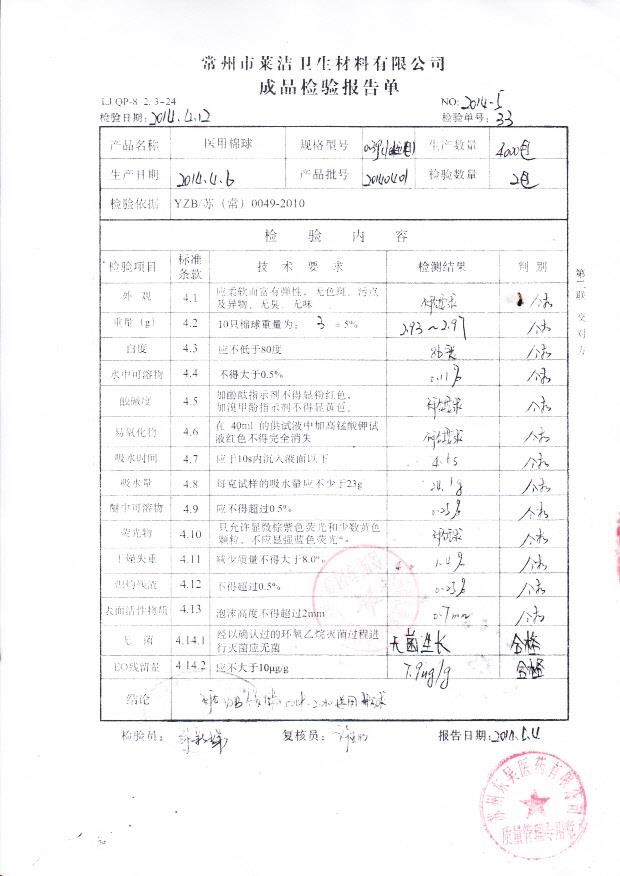 常州市莱洁卫生材料有限公司
成品检验报告单
LJ QP-8.2.3-24 NO: 2014-5
检验日期: 2014.4.12 检验单号: 33
产品名称 医用棉球 规格型号 生产数量 4000包
生产日期 2014.4.6 产品批号 20140401 检验数量 2包
检验依据 YZB/苏（常）0049-2010
检 验 内 容
检验项目 标准条款 技 术 要 求 检测结果 判 别
外 观 4.1 应柔软而富有弹性，无色斑、污点及异物，无臭、无味 符合要求 合格
重量（g） 4.2 10只棉球重量为： 3 ±5% 2.93～2.97 合格
白度 4.3 应不低于80度 合格
水中可溶物 4.4 不得大于0.5% 0.11% 合格
酸碱度 4.5 如酚酞指示剂不得显粉红色，如溴甲酚指示剂不得显黄色。 符合要求 合格
易氧化物 4.6 在 40ml 的供试液中加高锰酸钾试液红色不得完全消失 符合要求 合格
吸水时间 4.7 应于10s内沉入液面以下 合格
吸水量 4.8 每克试样的吸水量应不少于23g 24.1g 合格
醚中可溶物 4.9 应不得超过0.5% 0.25% 合格
荧光物 4.10 只允许显微棕紫色荧光和少数黄色颗粒，不应显强蓝色荧光。 符合要求 合格
干燥失重 4.11 减少质量不得大于8.0% 合格
炽灼残渣 4.12 不得超过0.5% 0.23% 合格
表面活性物质 4.13 泡沫高度不得超过2mm 0.7mm 合格
无 菌 4.14.1 经以确认过的环氧乙烷灭菌过程进行灭菌应无菌 无菌生长 合格
EO残留量 4.14.2 应不大于10μg/g 7.9ug/g 合格
结论
检验员: 复核员: 报告日期:
第二联 交对方
常州东吴医药有限公司
质量管理专用章